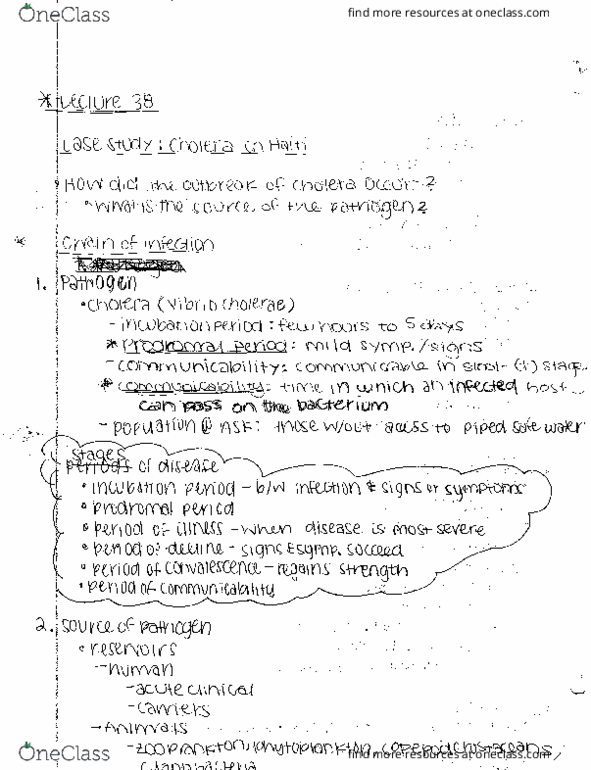 OneClass
find more resources at oneclass.com
* Lecture 38
Case study: Cholera in Haiti
• How did the outbreak of cholera occur?
• What is the source of the pathogen?
* Chain of infection
1. Pathogen
• cholera (Vibrio cholerae)
- incubation period: few hours to 5 days
* Prodromal period: mild symp./signs
- communicability: communicable in stool- (+) stage
* communicability: time in which an infected host
can pass on the bacterium
- population @ risk: those w/out access to piped safe water
stages
periods of disease
• incubation period - b/w infection & signs or symptoms
• prodromal period
• period of illness - when disease is most severe
• period of decline - signs & symp.
• period of convalescence - regains strength
• period of communicability
2. source of pathogen
• reservoirs
- human
- acute clinical
- carriers
- Animals
- zooplankton, phytoplankton,
OneClass
find more resources at oneclass.com